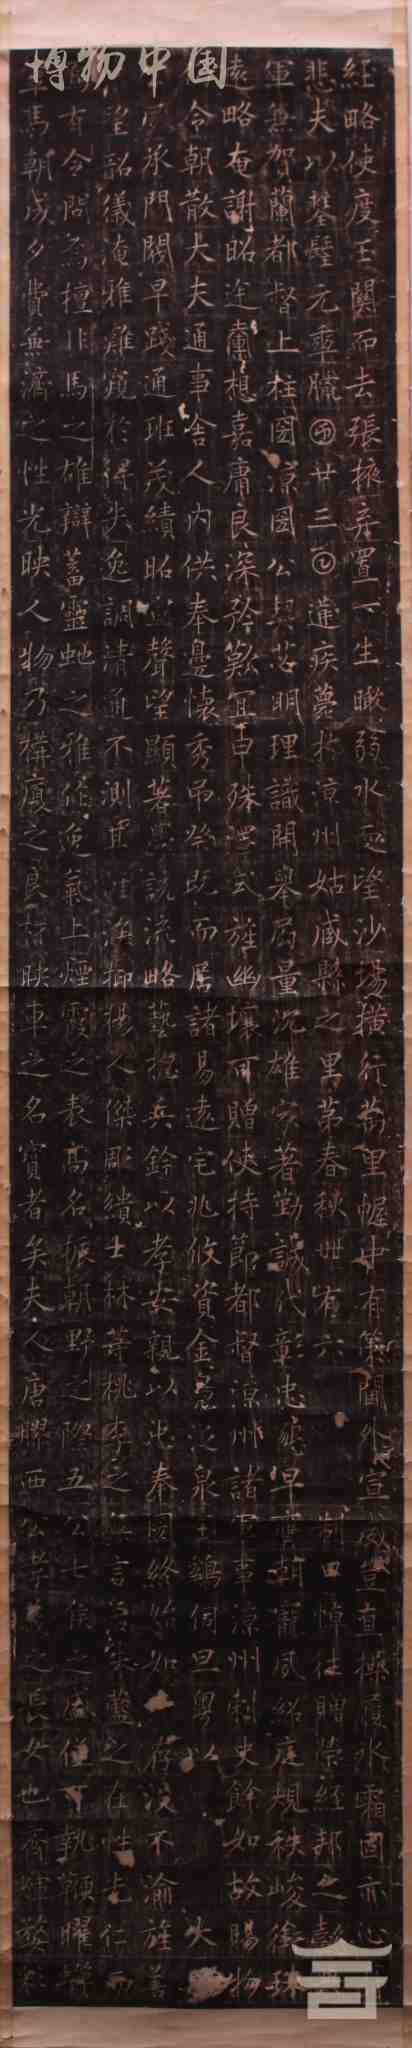 博物中国
經略使度玉關而去張掖弃置一生瞰弱水而望沙場橫行萬里幄中有策閫外宣威豈直操履氷霜固亦心
悲夫以元臘廿三遘疾薨於涼州姑臧縣之里第春秋卌有六 制曰悼往贈榮經邦之彝
軍兼賀蘭都督上柱國涼國公契苾明理識開舉局量沉雄守著勤誠代彰忠懇早膺朝寵夙紹庭規秩峻銜珠
遠略奄謝昭途載想嘉庸良深矜歎宜申殊澤式旌幽壤可贈使持節都督涼州諸軍事涼州刺史餘如故賜物
令朝散大夫通事舍人內供奉邊懷秀吊祭既而屬諸易遠宅兆攸資金蠶之泉玉鷄伺旦粵以 大
承門閥早踐通班茂績昭宣聲望顯著說流略藝揔兵鈐以孝安親以忠奉國終始如一存沒不渝旌善
望韶儀淹雅難窺於得失逸調清通不測其漁抑揚人傑彫繢士林等桃李之無言若朱藍之在性光仁而
有令問為檀非馬之雄辯蓄靈虵之雅作逸氣上煙霞之表高名振朝野之際五公七侯之盛從可執鞭曜蟬
馬朝成夕費無濟之性光映人物乃構廈之良材映車之名寶者矣夫人唐膠西公孝義之長女也